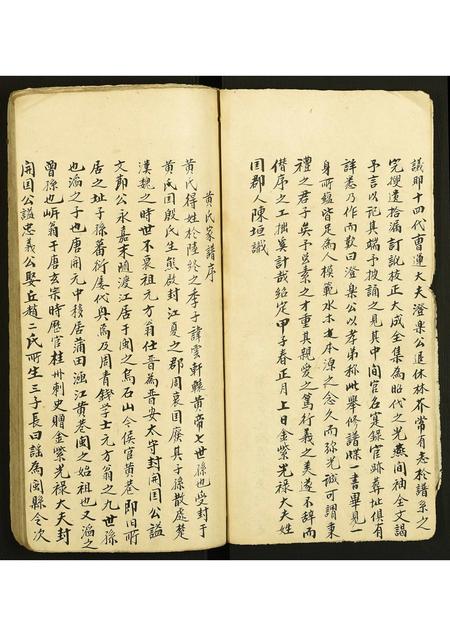 議郎十四代曹運大夫澄樂公退休林芥常有志於譜系之
完搜遺拾漏訂訛校正大成全集為昭代之光燕間袖全文謁
予言以記其端予披誦之見其中間官名寔錄官跡葬址俱有
詳悉乃作而歎曰澄樂公以孝弟稱此舉修譜牒一書畢見一
身所蘊皆足為人模範水木追本源之念久而弥光誠可謂秉
禮之君子矣予以文之才重其親愛之篤行義之美遂不辞而
僣序之工拙奚計哉紹定甲子春正月上日金紫光祿大夫姓
国郡人陳垣識
黄氏家譜序
黄氏得姓於陸終之李子諱雲軒轅黄帝七世孫也受封于
黄氏因殷氏生熊啟封江夏之郡周衰国廃其子孫散處楚
漢魏之時世不衰祖元方翁仕晋為晋安太守封開国公謚
文郡公永嘉末随渡江居于閩之烏石山令侯官黄巷即旧所
居之址子孫蕃衍屡代與焉及周青钱学士元方翁之九世孫
也滔之子也唐開元中移居莆田涵江黄巷閩之始祖也又滔之
曾孫也岍翁于唐玄宗時歷官桂州刺史贈金紫光禄大夫封
開国公謚忠義公娶丘趙二氏所生三子長曰謠為閩縣令次